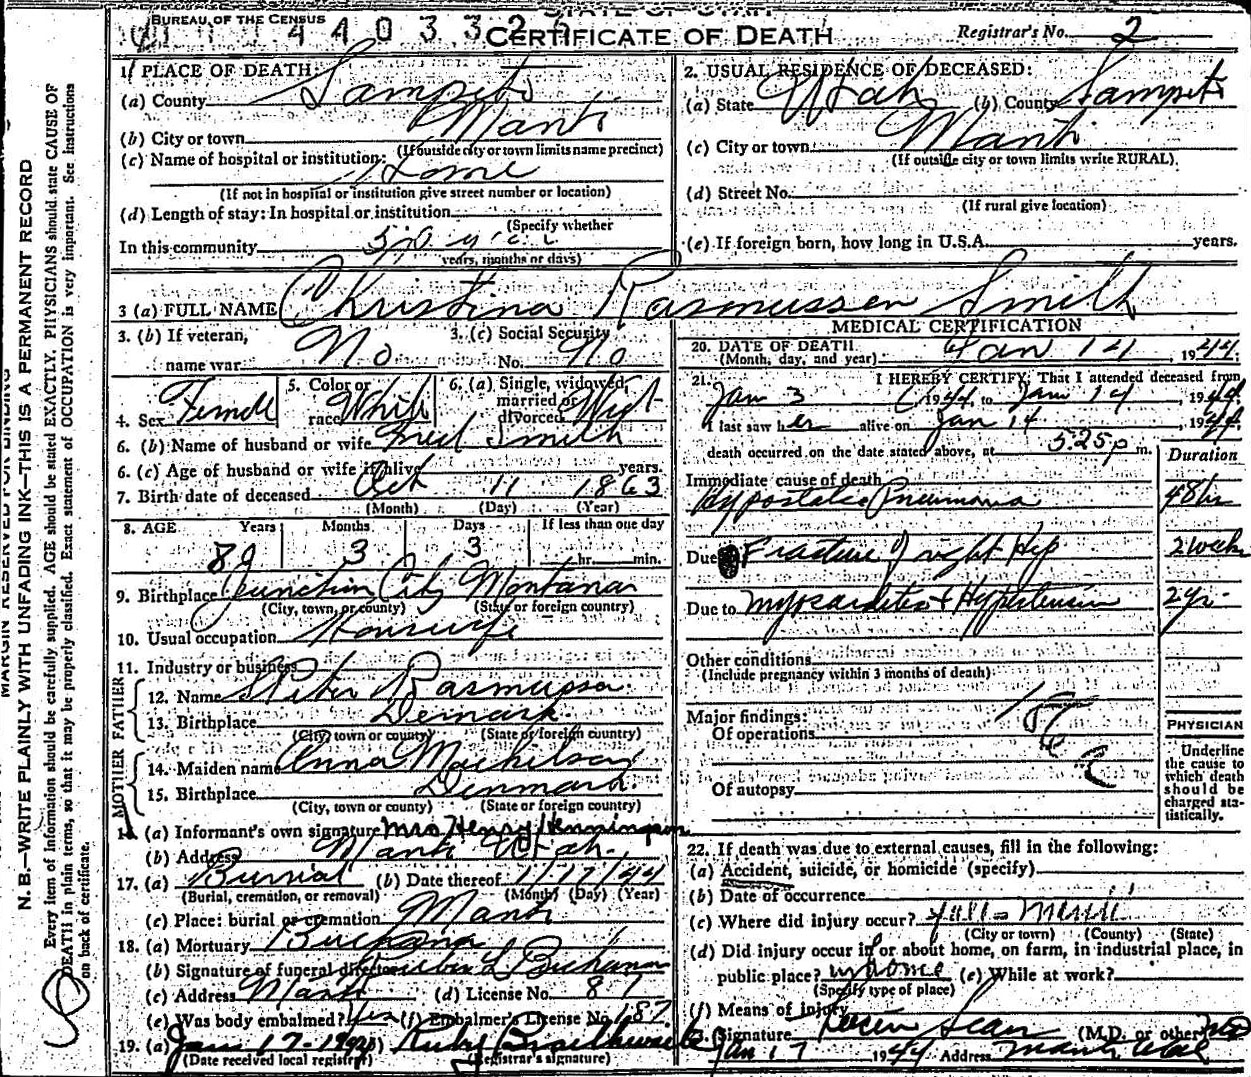 STATE OF UTAH
BUREAU OF THE CENSUS
CERTIFICATE OF DEATH
Registrar's No. 2
1. PLACE OF DEATH:
(a) County Sanpete
(b) City or town Manti
(If outside city or town limits name precinct)
(c) Name of hospital or institution:
Home
(If not in hospital or institution give street number or location)
(d) Length of stay: In hospital or institution
(Specify whether
In this community
years, months or days)
2. USUAL RESIDENCE OF DECEASED:
(a) State Utah (b) County Sanpete
(c) City or town Manti
(If outside city or town limits write RURAL)
(d) Street No.
(If rural give location)
(e) If foreign born, how long in U.S.A. years.
3 (a) FULL NAME Christina Rasmussen Smith
3. (b) If veteran, name war No
3. (c) Social Security No. No
4. Sex Female
5. Color or race White
6. (a) Single, widowed, married or divorced Wid
6. (b) Name of husband or wife Fred Smith
6. (c) Age of husband or wife if alive years.
7. Birth date of deceased Oct 11 1863
(Month) (Day) (Year)
8. AGE Years Months Days If less than one day
80 3 3 hr. min.
9. Birthplace Junction City Montana
(City, town, or county) (State or foreign country)
10. Usual occupation Housewife
11. Industry or business
FATHER
12. Name Peter Rasmussen
13. Birthplace Denmark
(City town or county) (State or foreign country)
MOTHER
14. Maiden name Anna
15. Birthplace Denmark
(City, town or county) (State or foreign country)
16. (a) Informant's own signature Mrs Henry Henningson
(b) Address Manti Utah
17. (a) Burial (b) Date thereof 1/17/44
(Burial, cremation, or removal) (Month) (Day) (Year)
(c) Place: burial or cremation Manti
18. (a) Mortuary
(b) Signature of funeral director
(c) Address Manti (d) License No. 87
(e) Was body embalmed? Yes (f) Embalmer's License No. 187
19. (a) Jan 17-1944 (b) Ruby Braithwaite
(Date received local registrar) (Registrar's signature)
MEDICAL CERTIFICATION
20. DATE OF DEATH
(Month, day, and year) Jan 14, 1944
21. I HEREBY CERTIFY, That I attended deceased from
Jan 3 1944, to Jan 14, 1944
I last saw her alive on Jan 14, 1944
death occurred on the date stated above, at 5:25 p m.
Duration
Immediate cause of death
Hypostatic Pneumonia 48 hr
Due to Fracture of right Hip 2 weeks
Due to Myocarditis & Hypertension 2 yr.
Other conditions
(Include pregnancy within 3 months of death)
Major findings:
Of operations
Of autopsy
PHYSICIAN
Underline
the cause to
which death
should be
charged sta-
tistically.
22. If death was due to external causes, fill in the following:
(a) Accident, suicide, or homicide (specify)
(b) Date of occurrence
(c) Where did injury occur? Manti
(City or town) (County) (State)
(d) Did injury occur in or about home, on farm, in industrial place, in
public place? in home (e) While at work?
(Specify type of place)
(f) Means of injury
Signature (M.D. or other) MD
Jan 17 1944 Address Manti Utah
MARGIN RESERVED FOR BINDING
N. B.—WRITE PLAINLY WITH UNFADING INK—THIS IS A PERMANENT RECORD
Every item of information should be carefully supplied. AGE should be stated EXACTLY. PHYSICIANS should state CAUSE OF
DEATH in plain terms, so that it may be properly classified. Exact statement of OCCUPATION is very important. See Instructions
on back of certificate.